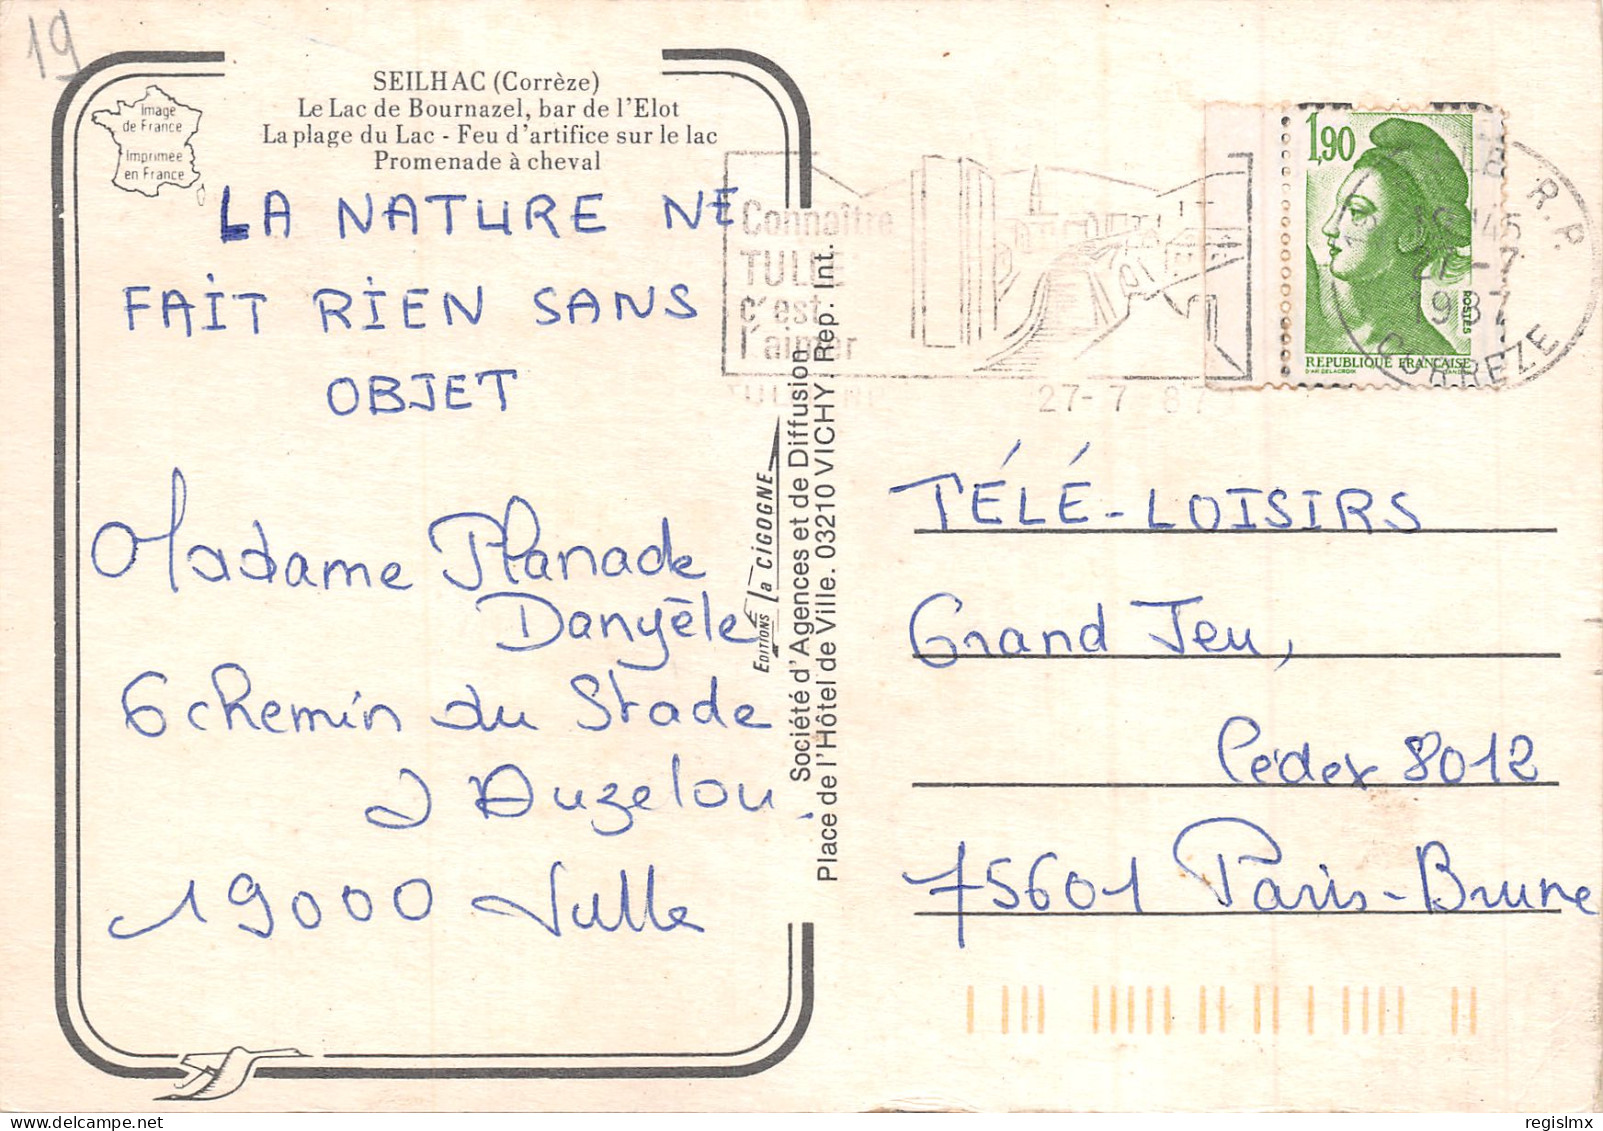 19
SEILHAC (Corrèze)
Le Lac de Bournazel, bar de l'Elot
La plage du Lac - Feu d'artifice sur le lac
Promenade à cheval
Image
de France
Imprimée
en France
LA NATURE NE
FAIT RIEN SANS
OBJET
Madame Planade
Danyèle
6 chemin du Stade
Auzelou
19000 Tulle
EDITIONS La CIGOGNE
Société d'Agences et de Diffusion
Place de l'Hôtel de Ville. 03210 VICHY. Rep. Int.
Connaître
TULLE
c'est
l'aimer
27-7 87
1,90
ROSTES
REPUBLIQUE FRANÇAISE
R.P.
18 H 45
27-7
1987
CORREZE
TÉLÉ-LOISIRS
Grand Jeu,
Cédex 8012
75601 Paris-Brune
regislmx